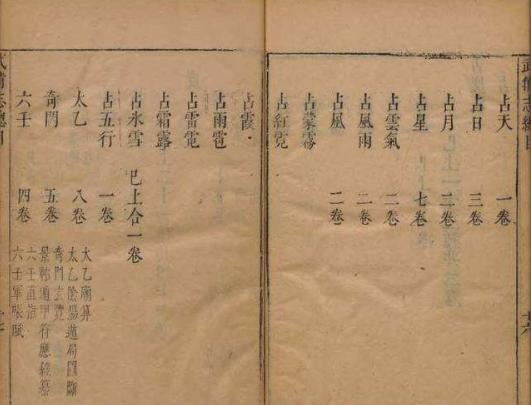 占天 一卷
占日 三卷
占月 二卷
占星 七卷
占雲氣 二卷
占風雨 二卷
占風 二卷
占蒙霧
占虹霓
占霞
占雨雹
占雷電
占霜露
占氷雪 已上合一卷
占五行 一卷
太乙 八卷
太乙 算
太乙陰陽遁局圖斷
奇門 五卷
奇門玄覽
景祐遁甲符應經纂
六壬 四卷
六壬直指
六壬軍帳賦
武備志總目